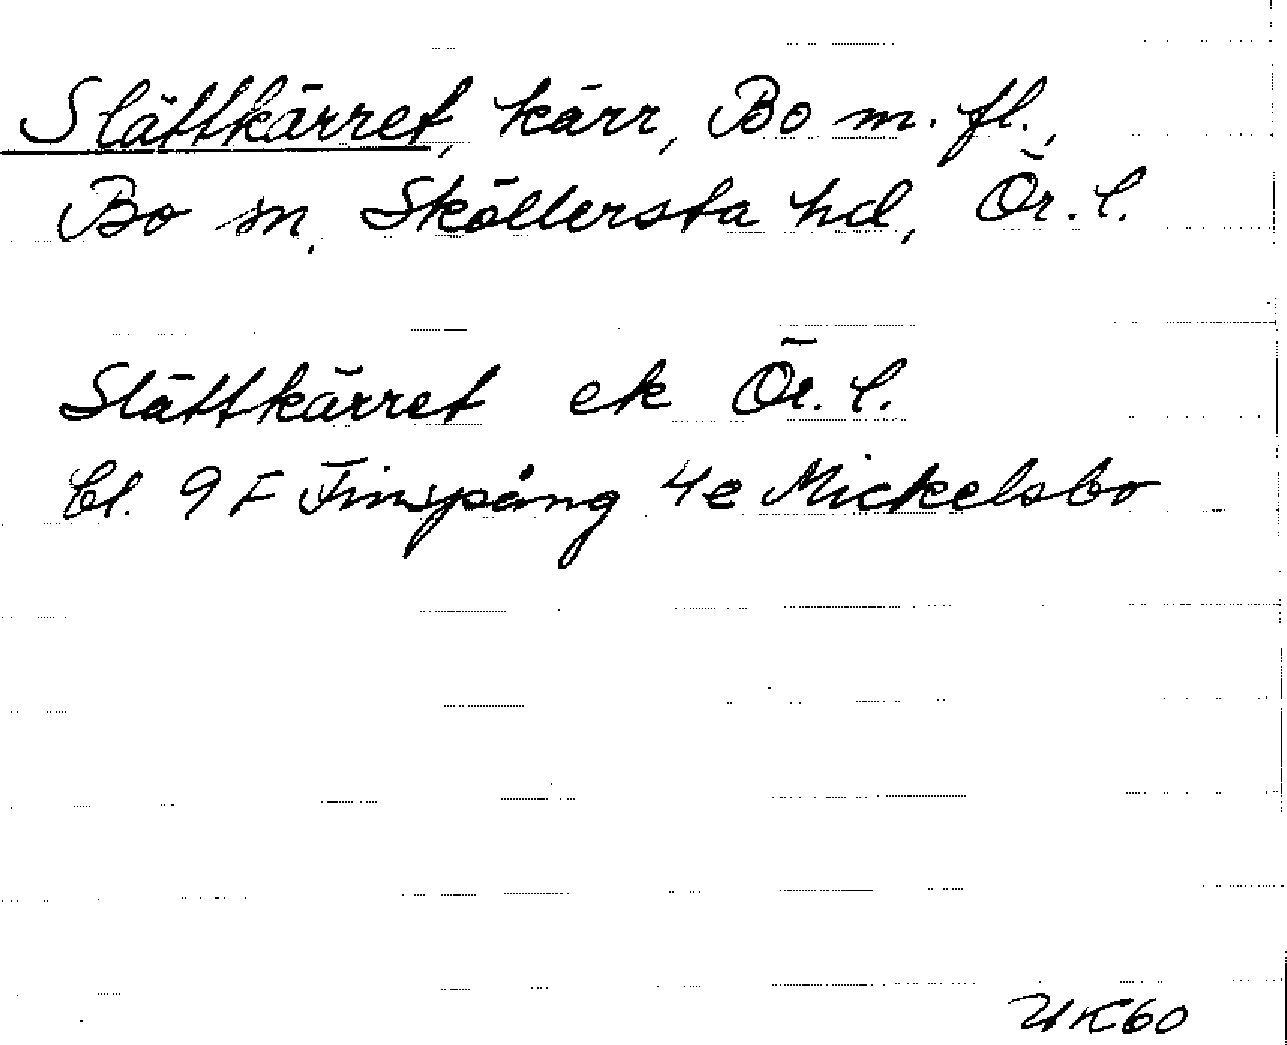 Slättkärret, kärr, Bo m. fl.,
Bo sn, Sköllersta hd, Ör. l.
Slättkärret ek Ör. l.
bl. 9 F Finspång 4e Mickelsbo
UK60